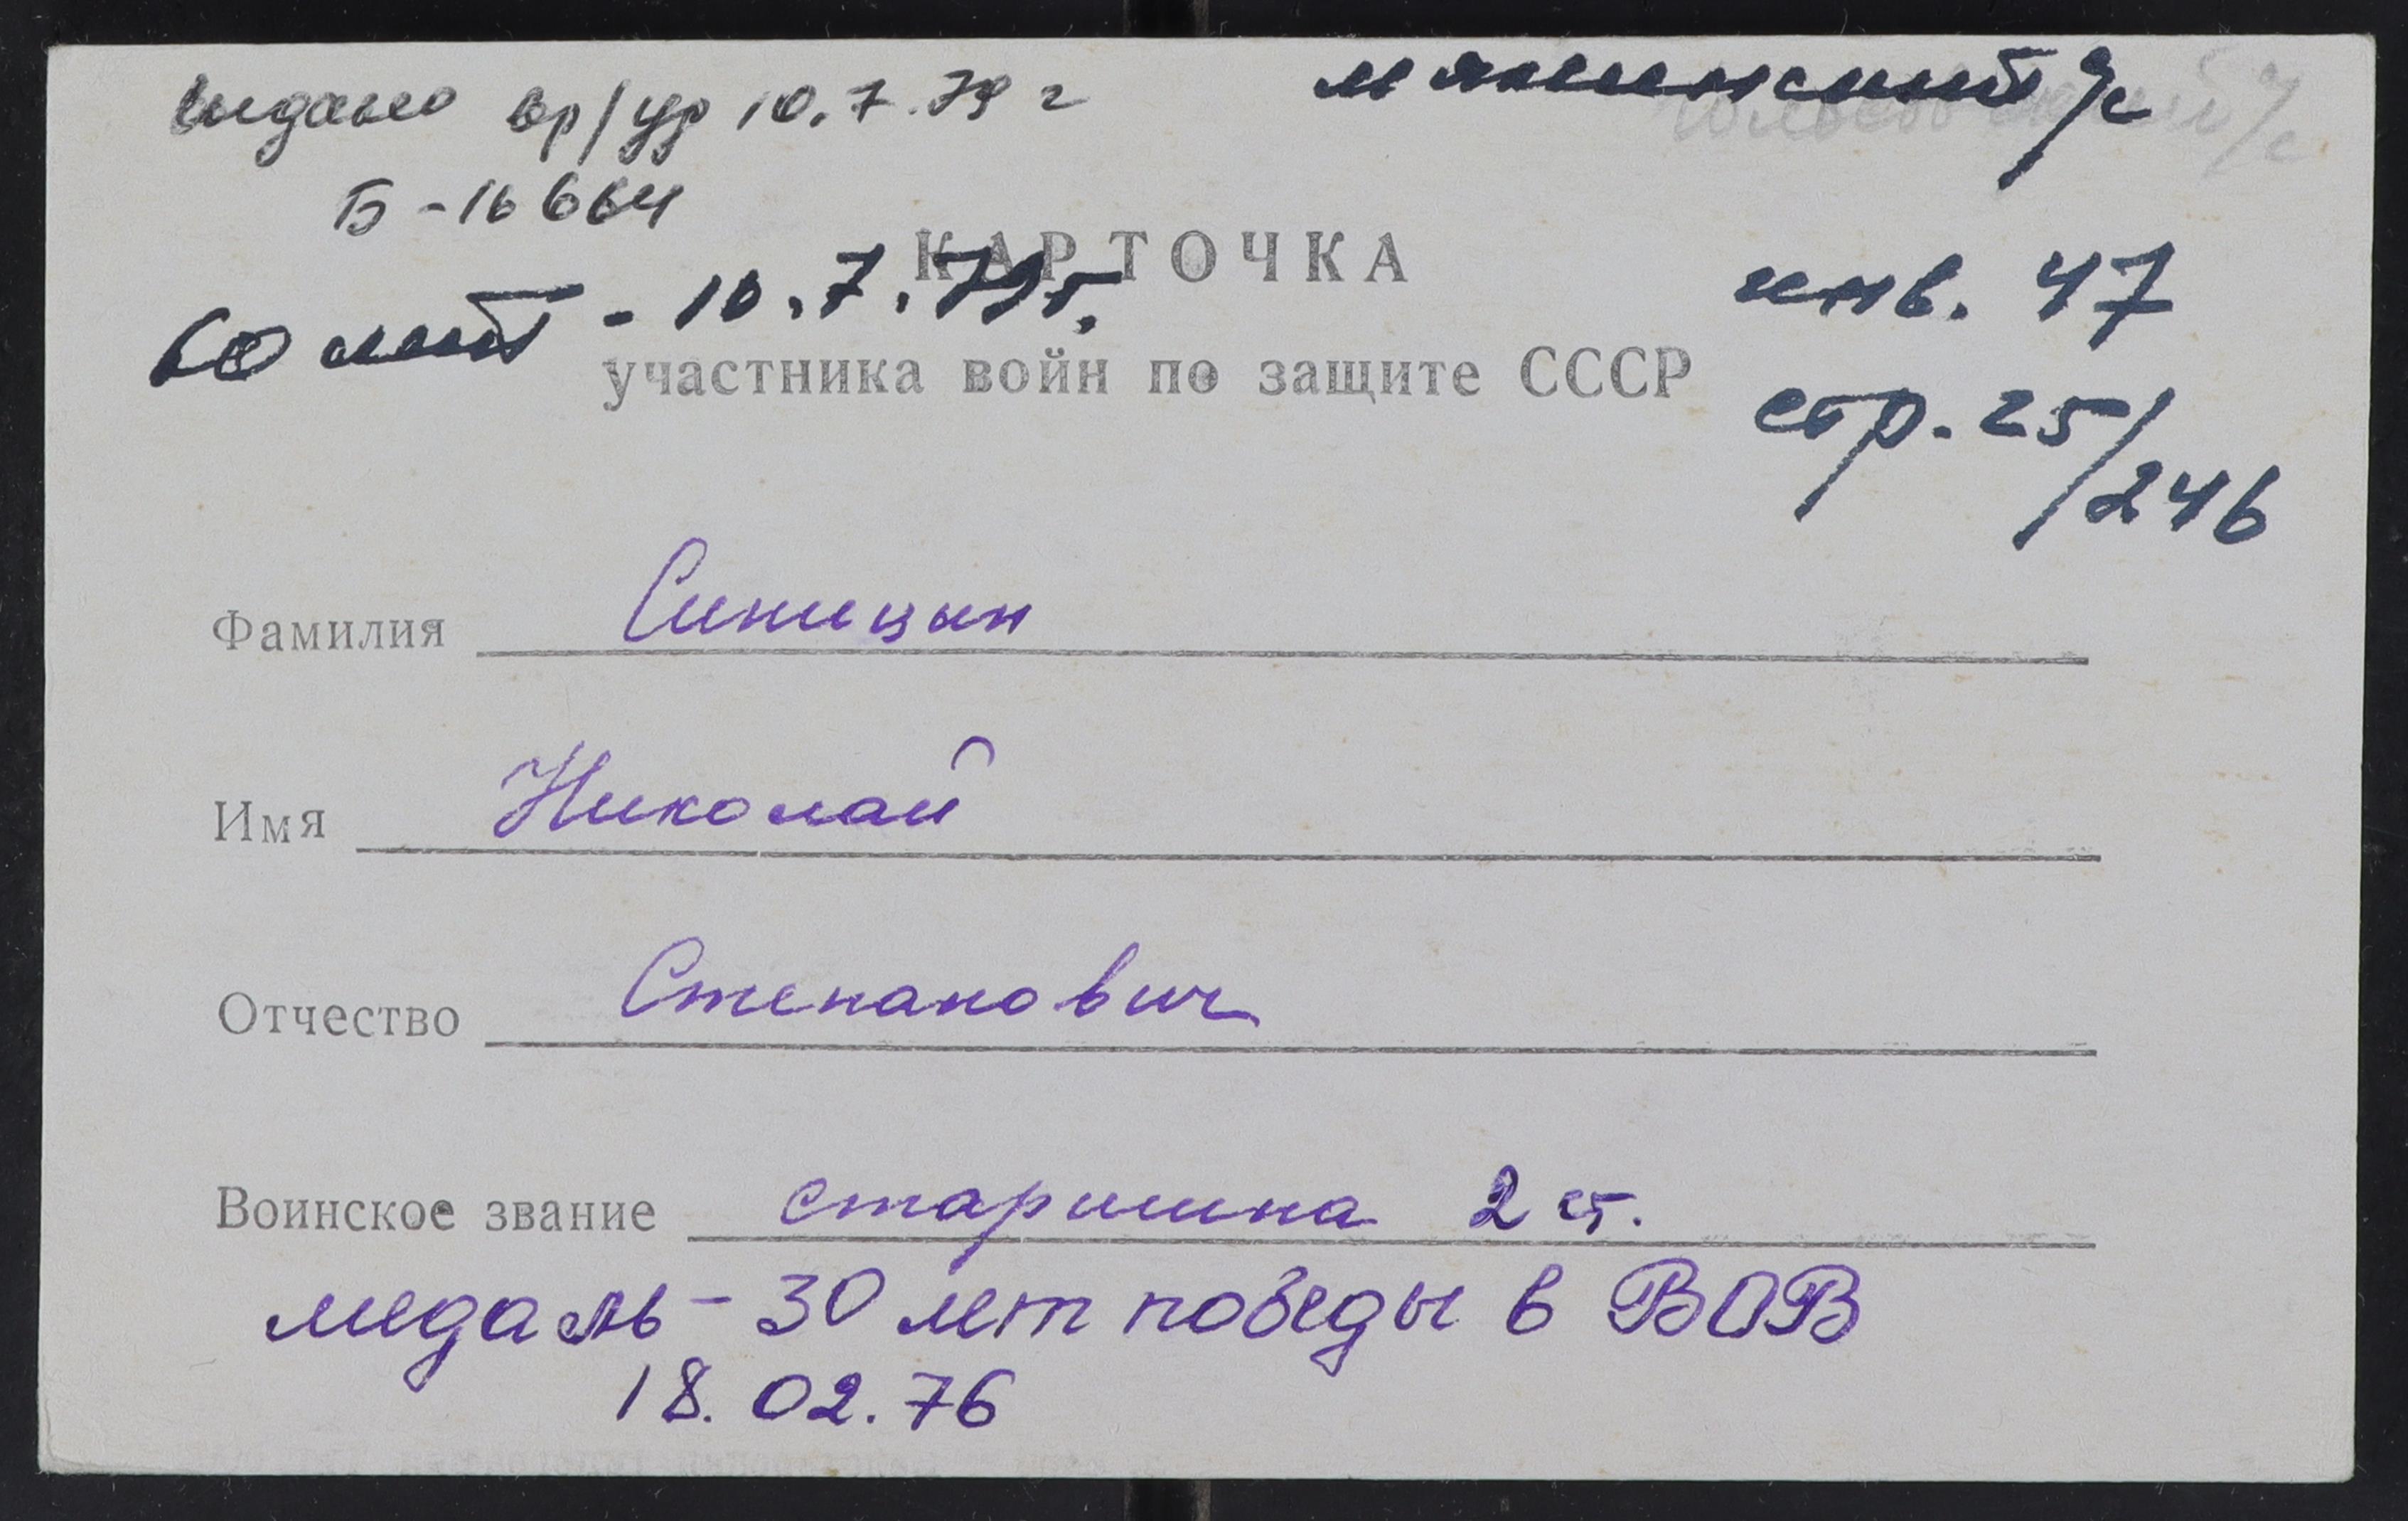 выдано вр/уд 10.7.79 г
с/с
Б-16664
КАРТОЧКА
60 лет - 10.7.79г.
инв. 47
участника войн по защите СССР
стр. 25/246
Фамилия Синицын
Имя Николай
Отчество Степанович
Воинское звание старшина 2 ст.
медаль - 30 лет победы в ВОВ
18.02.76